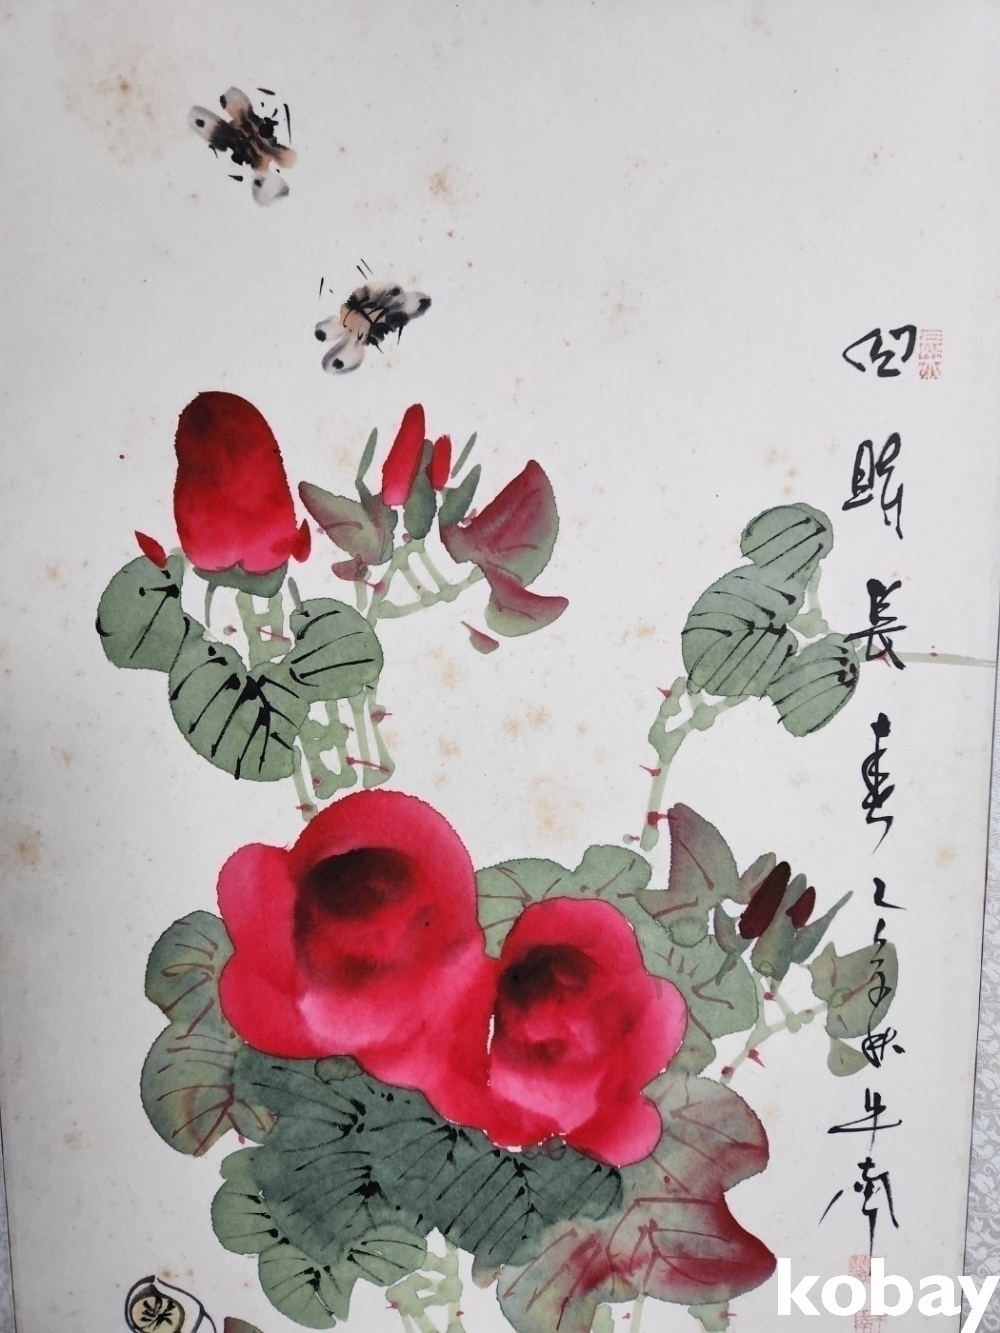 四時長春乙亥秋牛南
kobay